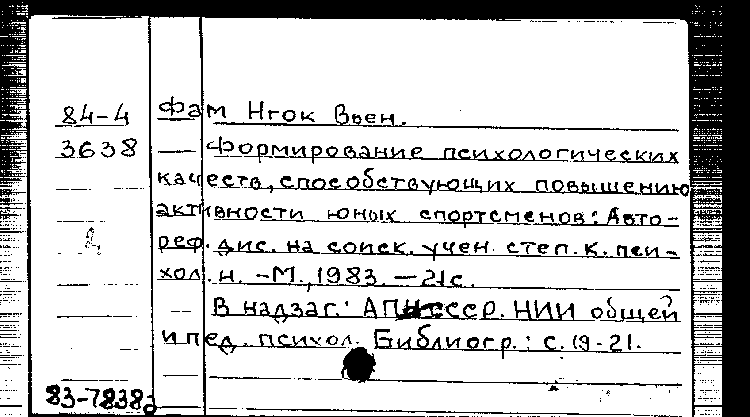 84-4 Фам Нгок Вьен.
3638 Формирование психологических
качеств, способствующих повышению
активности юных спортсменов: Авто-
реф. дис. на соиск. учен. степ. к. пси-
хол. н. -М., 1983. — 21с.
В надзаг.: АПН СССР. НИИ общей
и пед. психол. Библиогр.: с. 19-21.
83-78382